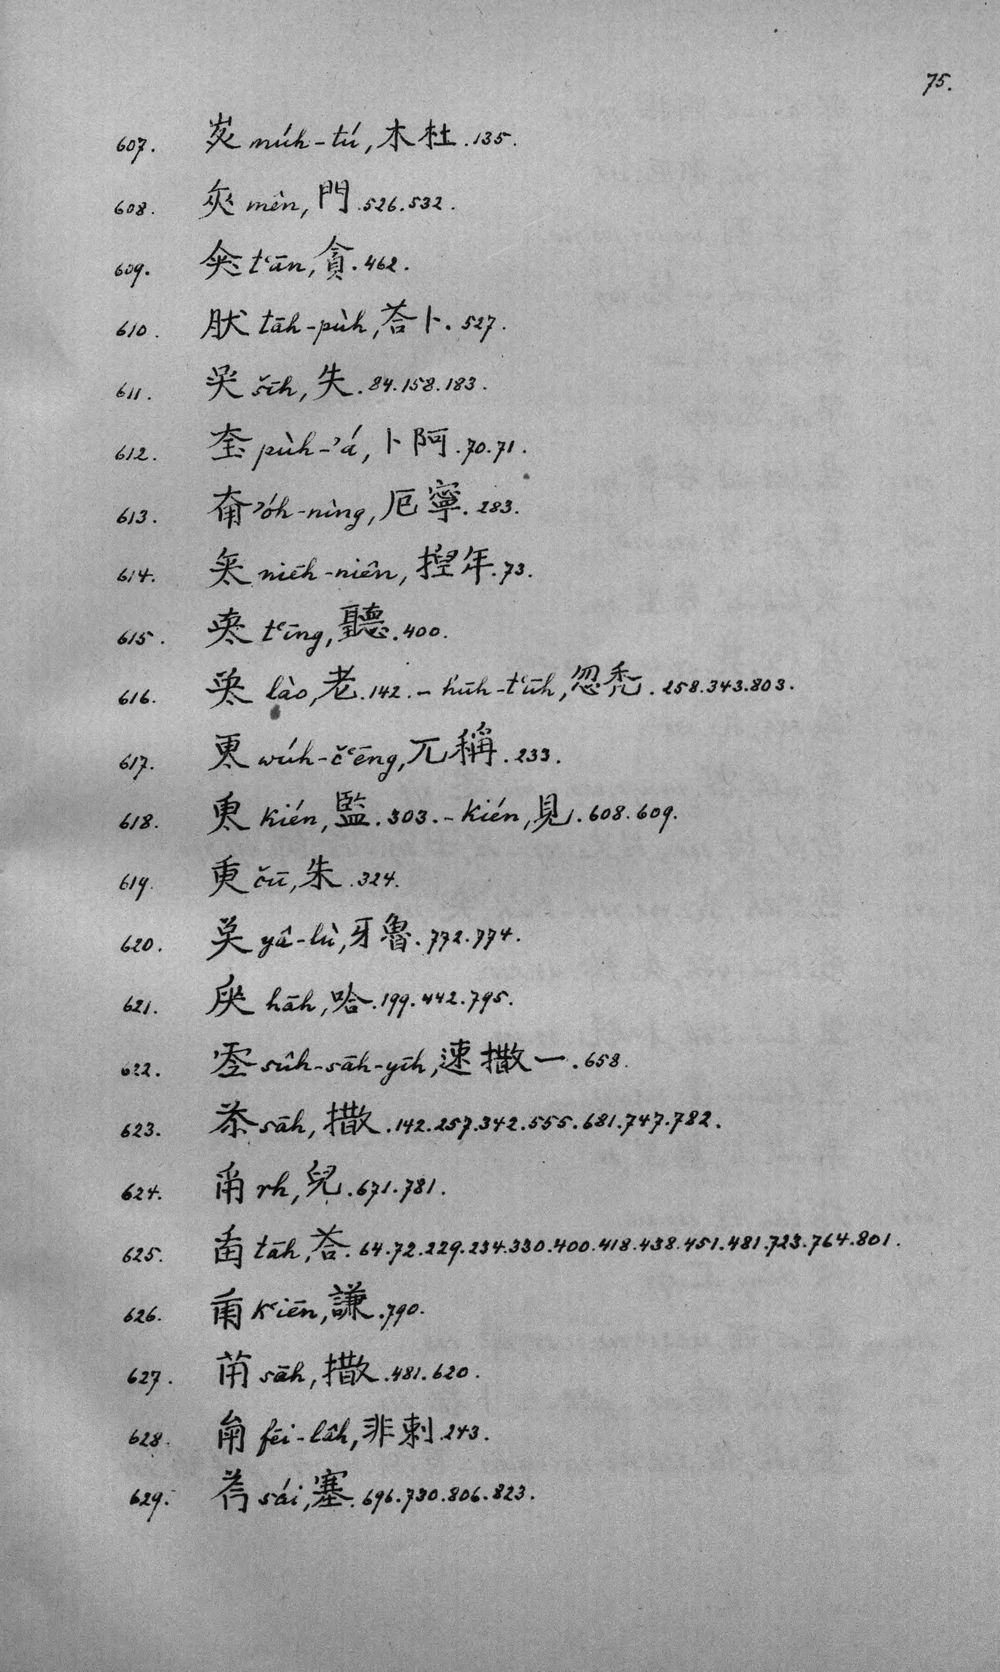 75.
607. múh-tú, 木杜.135.
608. mên, 門.526.532.
609. tʻān, 貪.462.
610. tāh-pùh, 荅卜.527.
611. šīh, 失.84.158.183.
612. pùh-ʼá, 卜阿.70.71.
613. ʼóh-nìng, 厄寧.283.
614. niēh-niên, 揑年.73.
615. tʻīng, 聽.400.
616. lào, 老.142.- hūh-tʻūh, 忽禿.258.343.803.
617. wúh-čʻēng, 兀稱.233.
618. kién, 監.303.- kién, 見.608.609.
619. čū, 朱.324.
620. yâ-lù, 牙魯.772.774.
621. hāh, 哈.199.442.795.
622. sûh-sāh-yīh, 速撒一.658.
623. sāh, 撒.142.257.342.555.681.747.782.
624. rh, 兒.671.781.
625. tāh, 荅.64.72.229.234.330.400.418.438.451.481.723.764.801.
626. kʻiēn, 謙.790.
627. sāh, 撒.481.620.
628. fēi-lâh, 非剌.243.
629. sái, 塞.696.730.806.823.